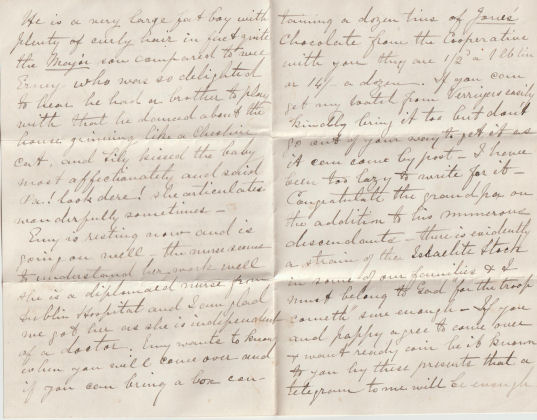 He is a very large fat boy with
plenty of curly hair in fact quite
the Major son compared to wee
Erny who was so delighted
to hear he had a brother to play
with that he danced about the
house grinning like a Cheshire
cat, and Lily kissed the baby
most affectionately and said
Pa! look dere! She articulates
wonderfully sometimes -
Emy is resting now and is
going on well - the nurse seems
to understand her work well
she is a diplomaed nurse from
Dublin Hospital and I am glad
we got her as she is independent
of a doctor. Emy wants to know
when you will come over and
if you can bring a box con-
taining a dozen tins of Jones'
Chocolate from the Cooperative
with you they are 1/2 a 1 lb tin
or 14/- a dozen. If you can
get my watch from easily
kindly bring it too but don't
go out of your way to get it as
it can come by post - I have
been too lazy to write for it -
Congratulate the grandpa on
the addition to his numerous
descendants - there is evidently
a strain of the Israelite Stock
in some of our families & I
must belong to Gad for the troop
cometh sure enough - If you
and pappy agree to come over
& want ready coin be it known
to you by these presents that a
telegram to me will be enough